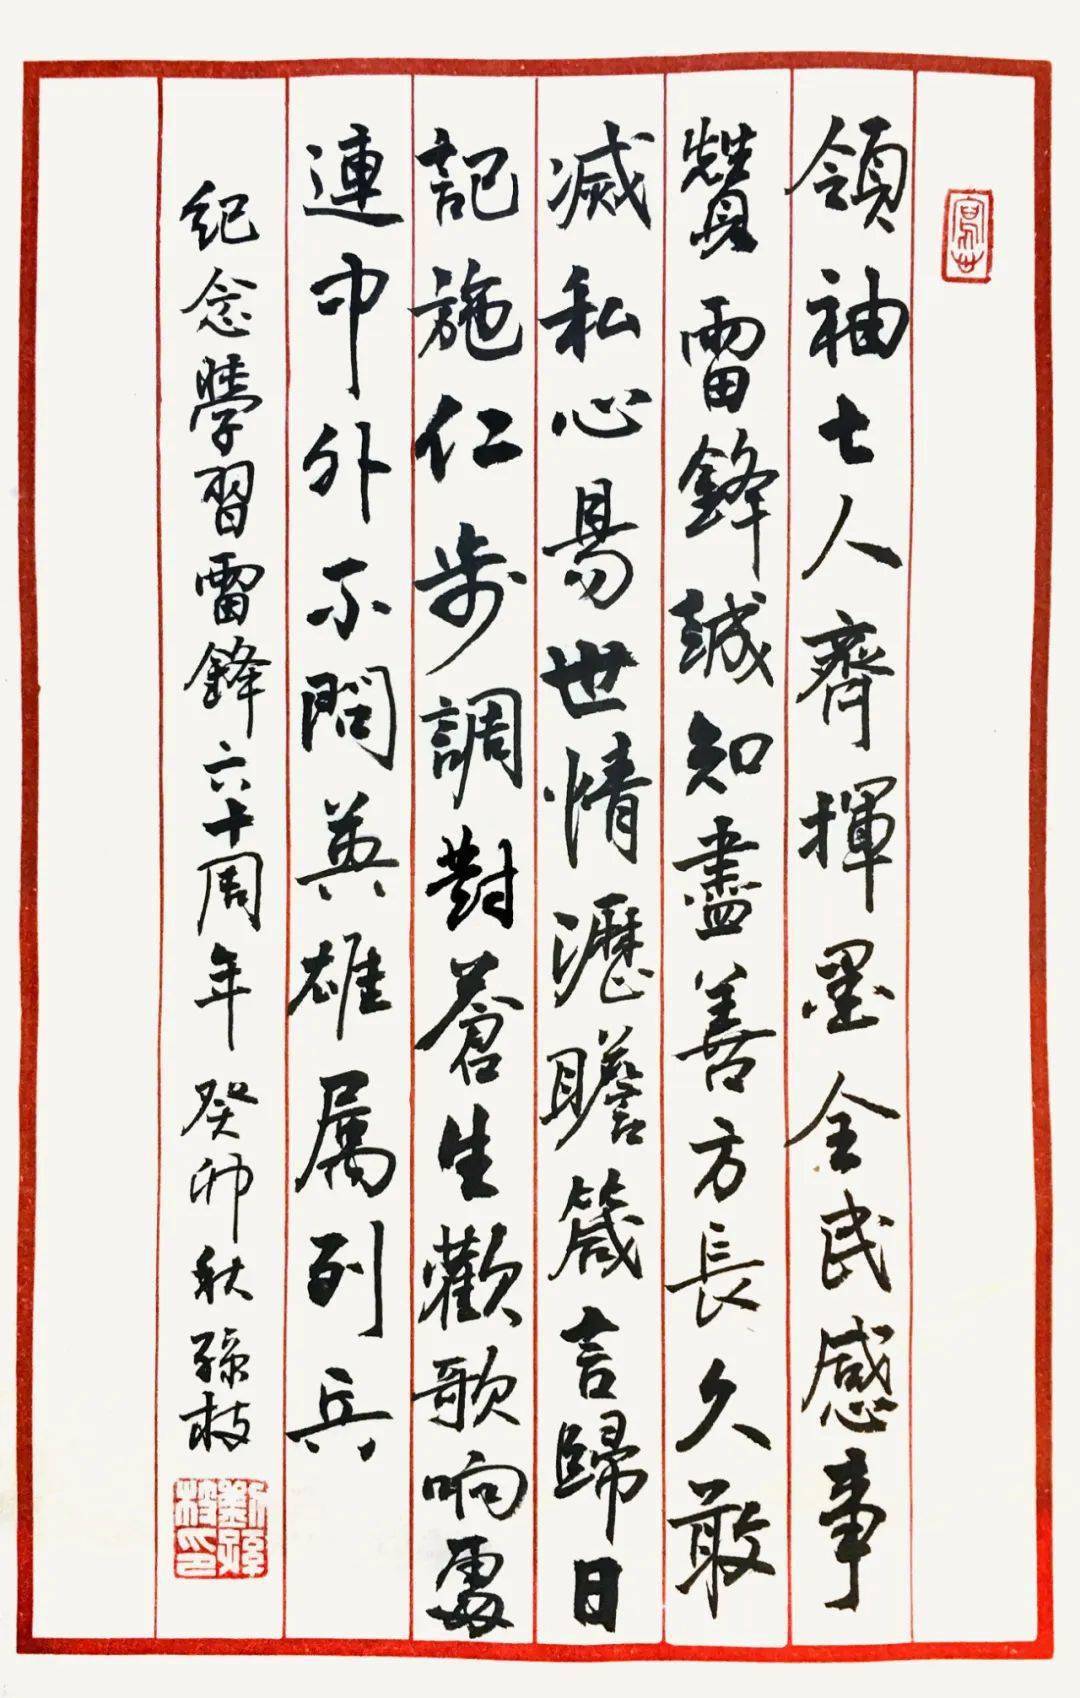 領袖七人齊揮墨全民感事
贊雷鋒誠知盡善方長久敢
滅私心易世情瀝膽箴言歸日
記施仁步調對蒼生歡歌响處
連中外不問英雄属列兵
紀念學習雷鋒六十周年 癸卯秋 孫枝
劉孫枝印